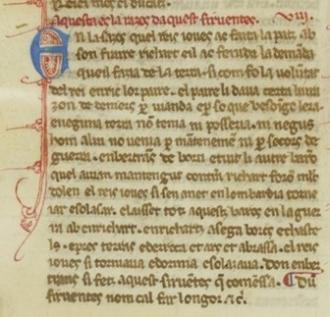 Aquesta es la razos daquest siruentes. VIII.
En la sazos qel reis ioues ac faita la patz ab
son fraire richart e il ac fenida la demanda
quel fazia de la terra. si com fo la volūtat
del rei enric lor paire. el paire li daua certa liura
zon de deniers ꝑ uianda eꝑ so que besoinge lera
e neguna terra nō tenia ni possezia. ni negus
hom a lui no uenia ꝑ mātenemēt ni ꝑ socors de
guerra. enbertrās de born e tuit li autre baro
que lauian mantengut contra richart foron mlt
dolen. el reis ioues si sen anet en lombardia tornei
iar e solasar. e laisset totz aquestz baros en la guer
ra ab enrichart. enrichartz asega borcs e chaste
ls. e pres terras e derroca et ars et abrassa. el reis
ioues si torniaua e dormia e solazaua. don enber
trans si fetz aquest siruētes q comēssa. Du
siruentes nom cal far longor. &c.